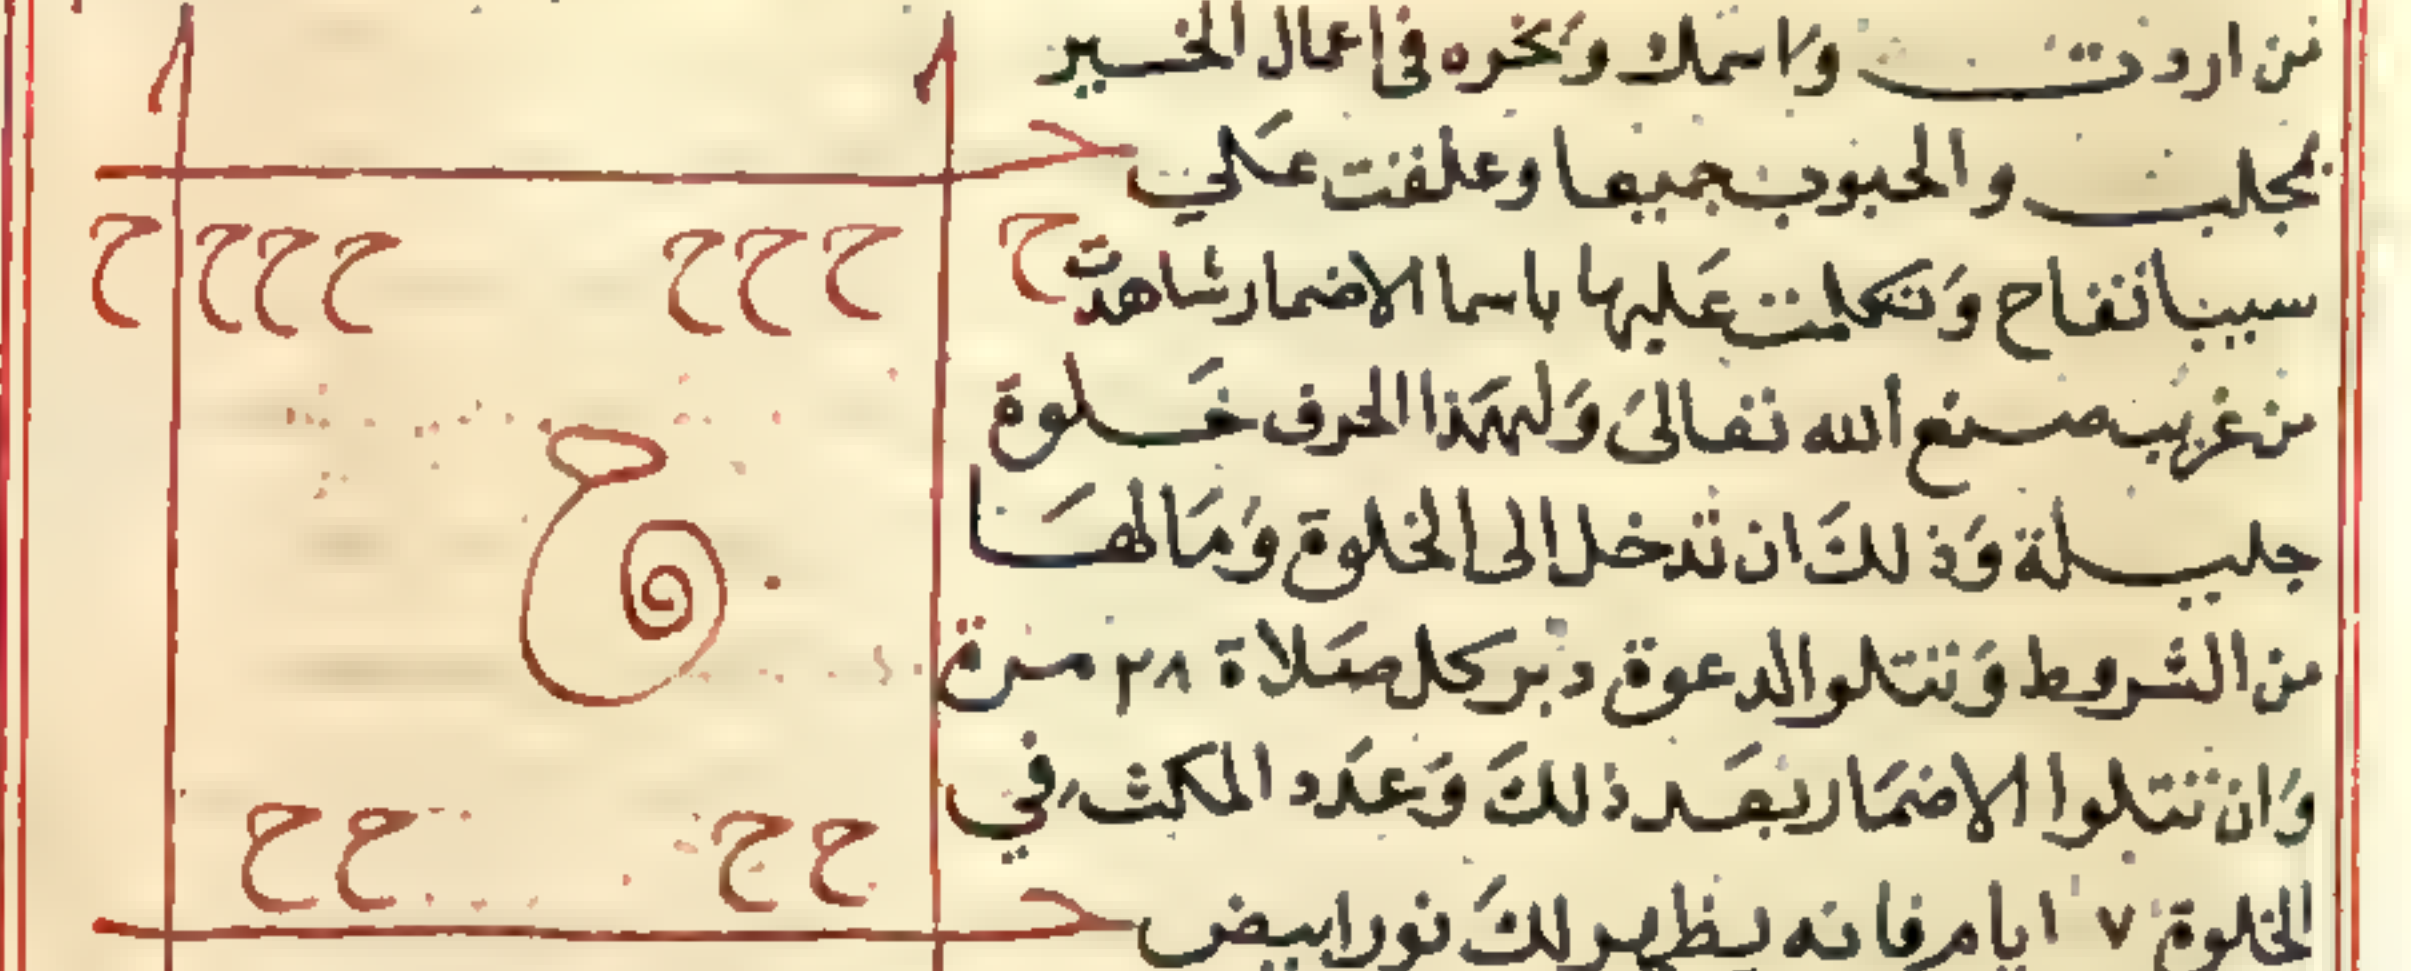 من اردت واسمك وبخره في اعمال الخير
بجلب والحبوب جميعا وعلقت علي
سيبا تفاح وتكلمت عليها باسما الاضمار شاهدت
من غريب صنع الله تعالى ولهذا الحرف خلوة
جليلة وذلك ان تدخل الى الخلوة وما لها
من الشروط وتتلوا الدعوة دبر كل صلاة ٢٨ مرة
وان تتلوا الاضمار بعد ذلك وعدد المكث في
الخلوة ٧ ايام فانه يظهر لك نور ابيض
ح ح ح ح ح ح ح ح
ح
ح ح ح ح